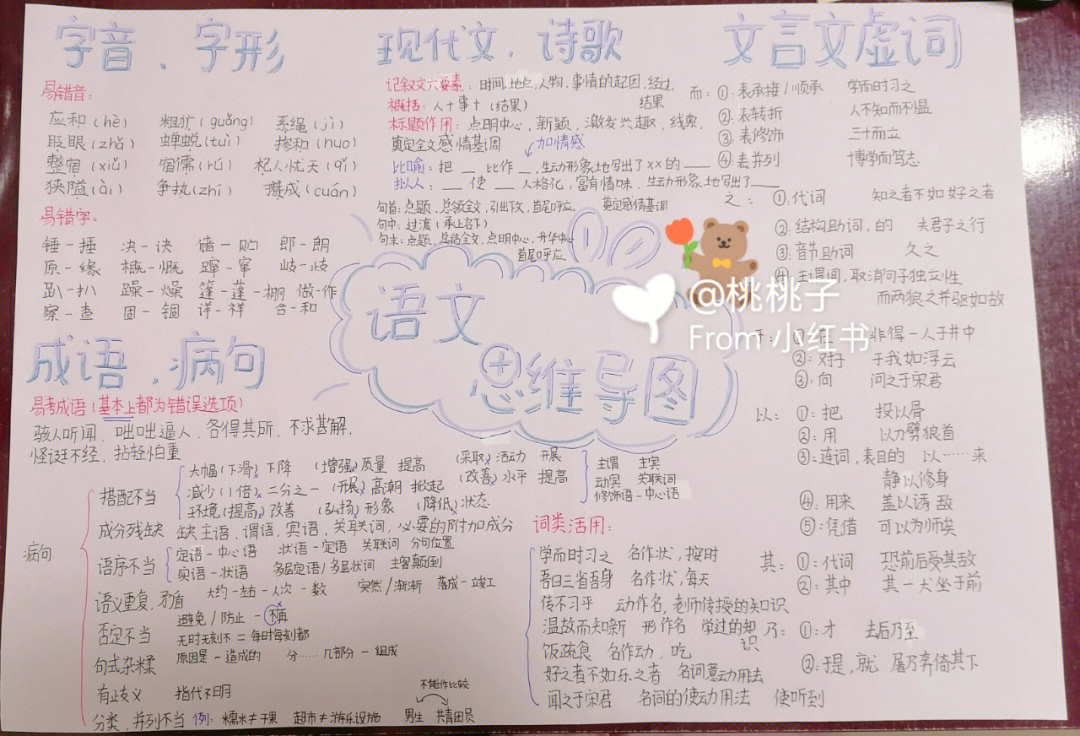 字音、字形
易错音:
应和(hè) 粗犷(guǎng) 系绳(jì)
眨眼(zhǎ) 蝉蜕(tuì) 掺和(huo)
整宿(xiǔ) 宿儒(rú) 杞人忧天(qǐ)
狭隘(ài) 争执(zhí) 攒成(cuán)
易错字:
锤-捶 决-诀 郎-朗
原-缘 概-慨 蹿-窜 歧-歧
趴-扒 躁-燥 篷-蓬-棚 做-作
察-查 固-锢 详-祥 合-和
成语、病句
易考成语(基本上都为错误选项)
骇人听闻、咄咄逼人、各得其所、不求甚解、
怪诞不经、拈轻怕重
病句
搭配不当
大幅(下滑)下降 (增强)质量 提高 (采取)活动 开展
减少(1倍)二分之一 (开展)高潮 掀起 (改善)水平 提高
环境(提高)改善 (弘扬)形象 (降低)状态
主谓 主宾
动宾 关联词
修饰语-中心语
成分残缺 缺主语、谓语、宾语、关联词、必要的附加成分
语序不当
定语-中心语 状语-定语 关联词 分句位置
宾语-状语 多层定语/多层状词 主客颠倒
语义重复,矛盾 大约-左右 -人次-数 突然/渐渐 落成-竣工
否定不当
避免/防止-不再
无时无刻不=每时每刻都
句式杂糅 原因是-造成的 分……几部分-组成
有歧义 指代不明
不能作比较
分类、并列不当 例: 糯米≠干果 超市≠游乐设施 男生 共青团员
现代文、诗歌
记叙文六要素:时间,地点,人物,事情的起因,经过,
结果
概括:人+事+(结果)
标题作用:点明中心,新颖,激发兴趣,线索,
奠定全文感情基调 加情感
比喻:把__比作__,生动形象地写出了xx的___
拟人:__使__人格化,富有情味,生动形象地写出了___
句首:点题,总领全文,引出下文,首尾呼应, 奠定感情基调
句中:过渡(承上启下)
句末:点题,总结全文,点明中心,升华中心
首尾呼应
语文
思维导图
@桃桃子
From 小红书
词类活用:
学而时习之 名作状,按时
吾日三省吾身 名作状,每天
传不习乎 动作名,老师传授的知识
温故而知新 形作名 学过的知
识
饭疏食 名作动,吃
好之者不如乐之者 名词意动用法
闻之于宋君 名词的使动用法 使听到
文言文虚词
而:①:表承接/顺承 学而时习之
②:表转折 人不知而不愠
③:表修饰 三十而立
④表并列 博学而笃志
之:①:代词 知之者不如好之者
②:结构助词,的 夫君子之行
③:音节助词 久之
主谓间,取消句子独立性
而两狼之并驱如故
于: 非得一人于井中
②:对于 于我如浮云
③:向 问之于宋君
以:①:把 投以骨
②:用 以刀劈狼首
③:连词,表目的 以……来
静以修身
④:用来 盖以诱敌
⑤:凭借 可以为师矣
其:①:代词 恐前后受其敌
②:其中 其一犬坐于前
乃:①:才 去后乃至
②:于是,就 屠乃奔倚其下